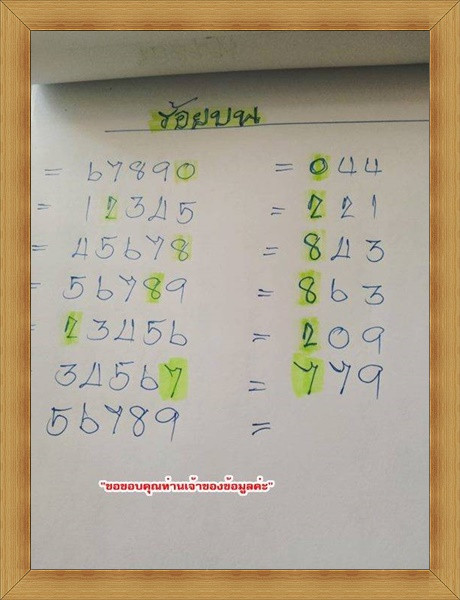 ร้อยบน
= 67890 = 044
= 12345 = 221
= 45678 = 843
= 56789 = 863
= 23456 = 209
34567 = 779
56789 =
"ขอขอบคุณท่านเจ้าของข้อมูลค่ะ"